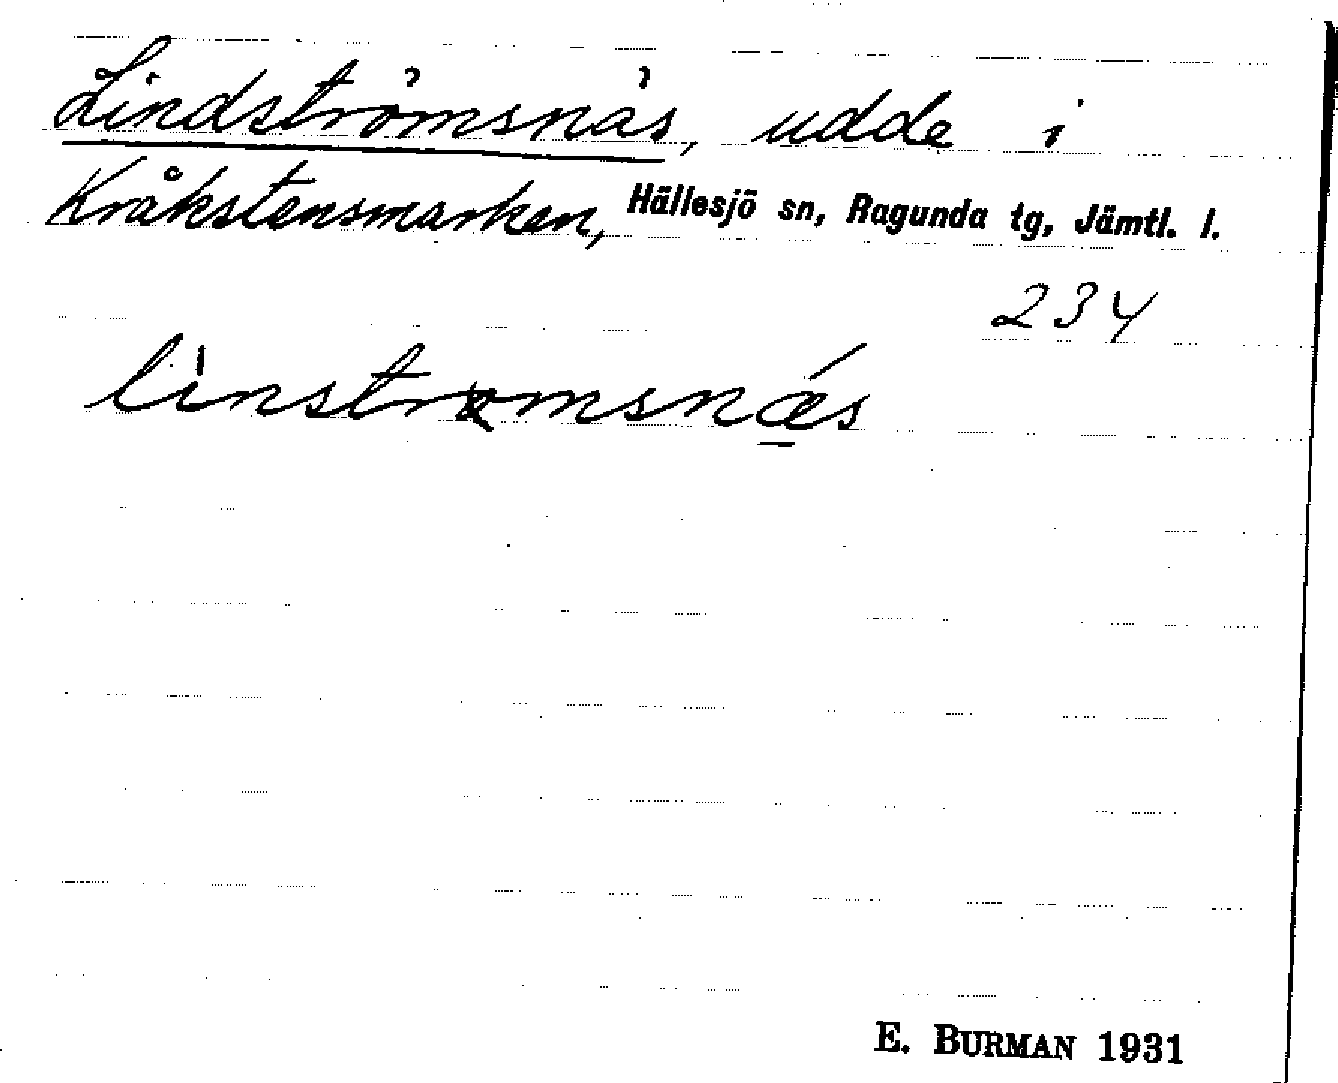 Lindströmsnäs, udde i
Kråkstensmarken, Hällesjö sn, Ragunda tg, Jämtl. l.
234
E. BURMAN 1931